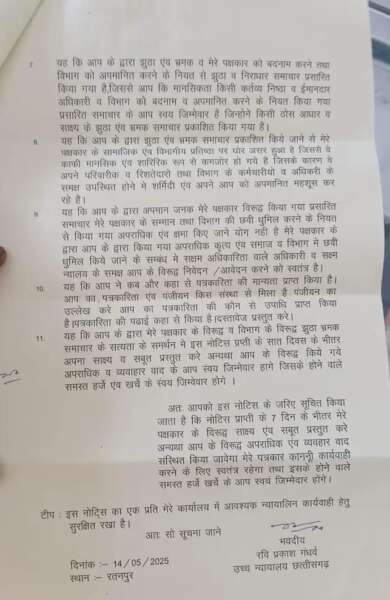 7. यह कि आप के द्वारा झुठा एंव भ्रमक व मेरे पक्षकार को बदनाम करने तथा
विभाग को अपमानित करने के नियत से झुठा व निराधार समाचार प्रसारित
किया गया है,जिससे आप कि मानसिकता किसी कर्तव्य निष्ठा व ईमानदार
अधिकारी व विभाग को बदनाम व अपमानित करने के नियत किया गया
प्रसारित समाचार के आप स्वय जिम्मेवार है जिन्होने किसी ठोस आधार व
साक्ष्य के झुठा एंव भ्रमक समाचार प्रकाशित किया गया है।
8. यह कि आप के द्वारा झुठा एंव भ्रमक समाचार प्रकाशित किये जाने से मेरे
पक्षकार के सामाजिक एंव विभागीय प्रतिष्ठा पर घोर असर हुआ है जिससे वे
काफी मानसिक एंव शारिरिक रूप से कमजोर हो गये है जिसके कारण वे
अपने परिवारीक व रिश्तेदारो तथा विभाग के कर्मचारीयो व अधिकरी के
समक्ष उपस्थित होने मे शर्मिदी एंव अपने आप को अपमानित महशुस कर
रहे है।
9. यह कि आप के द्वारा अपमान जनक मेरे पक्षकार विरूद्ध किया गया प्रसारित
समाचार मेरे पक्षकार के सम्मान तथा विभाग की छवी धुमिल करने के नियत
से किया गया अपराधिक एंव क्षमा किए जाने योग नही है मेरे पक्षकार के
द्वारा आप के द्वारा किया गया अपराधिक कृत्य एंव समाज व विभाग मे छवी
धुमिल किये जाने के सम्बंध मे सक्षम अधिकारिता वाले अधिकारी व सक्ष्म
न्यालय के समक्ष आप के विरूद्व निवेदन /आवेदन करने को स्वतंत्र है।
10. यह कि आप ने कब और कहा से पत्रकारिता की मान्यता प्राप्त किया है।
आप का पत्रकारिता एंव पंजीयन किस संस्था से मिला है पंजीयन का
उल्लेख करे आप का पत्रकारिता की कौन से उपाधि प्राप्त किया
है।पत्रकारिता की पढाई कहा से किया है।दस्तावेज प्रस्तुत करे।
11. यह कि आप के द्वारा मेरे पक्षकार के विरूद्व व विभाग के विरूद्व झुठा भ्रमक
समाचार के सत्यता के समर्थन मे इस नोटिस प्रप्ती के सात दिवस के भीतर
अपना साक्ष्य व सबूत प्रस्तुत करे अन्यथा आप के विरूद्व किये गये
अपराधिक व व्यवाहार वाद के आप स्वय जिम्वेदार हागे जिसके होने वाले
समस्त हर्जे एंव खर्चे के स्वय जिम्वेवार होगे ।
अतः आपको इस नोटिस के जरिए सूचित किया
जाता है कि नोटिस प्राप्ती के 7 दिन के भीतर मेरे
पक्षकार के विरूद्व साक्ष्य एंव सबूत प्रस्तुत करे
अन्यथा आप के विरूद्व अपराधिक एंव व्यवहार वाद
संस्थित किया जावेगा मेरे पत्रकार कानूनी कार्यवाही
करने के लिए स्वतंत्र रहेगा तथा इसके होने वाले
समस्त हर्जे खर्च के आप स्वयं जिम्मेदार होंगे।
टीप : इस नोट्सि का एक प्रति मेरे कार्यालय में आवश्यक न्यायालिन कार्यवाही हेतु
सुरक्षित रखा है।
अतः सो सूचना जाने
भवदीय
रवि प्रकाश गंधर्व
उच्च न्यायालय छत्तीसगढ़
दिनांक :– 14/05/2025
स्थान :– रतनपुर